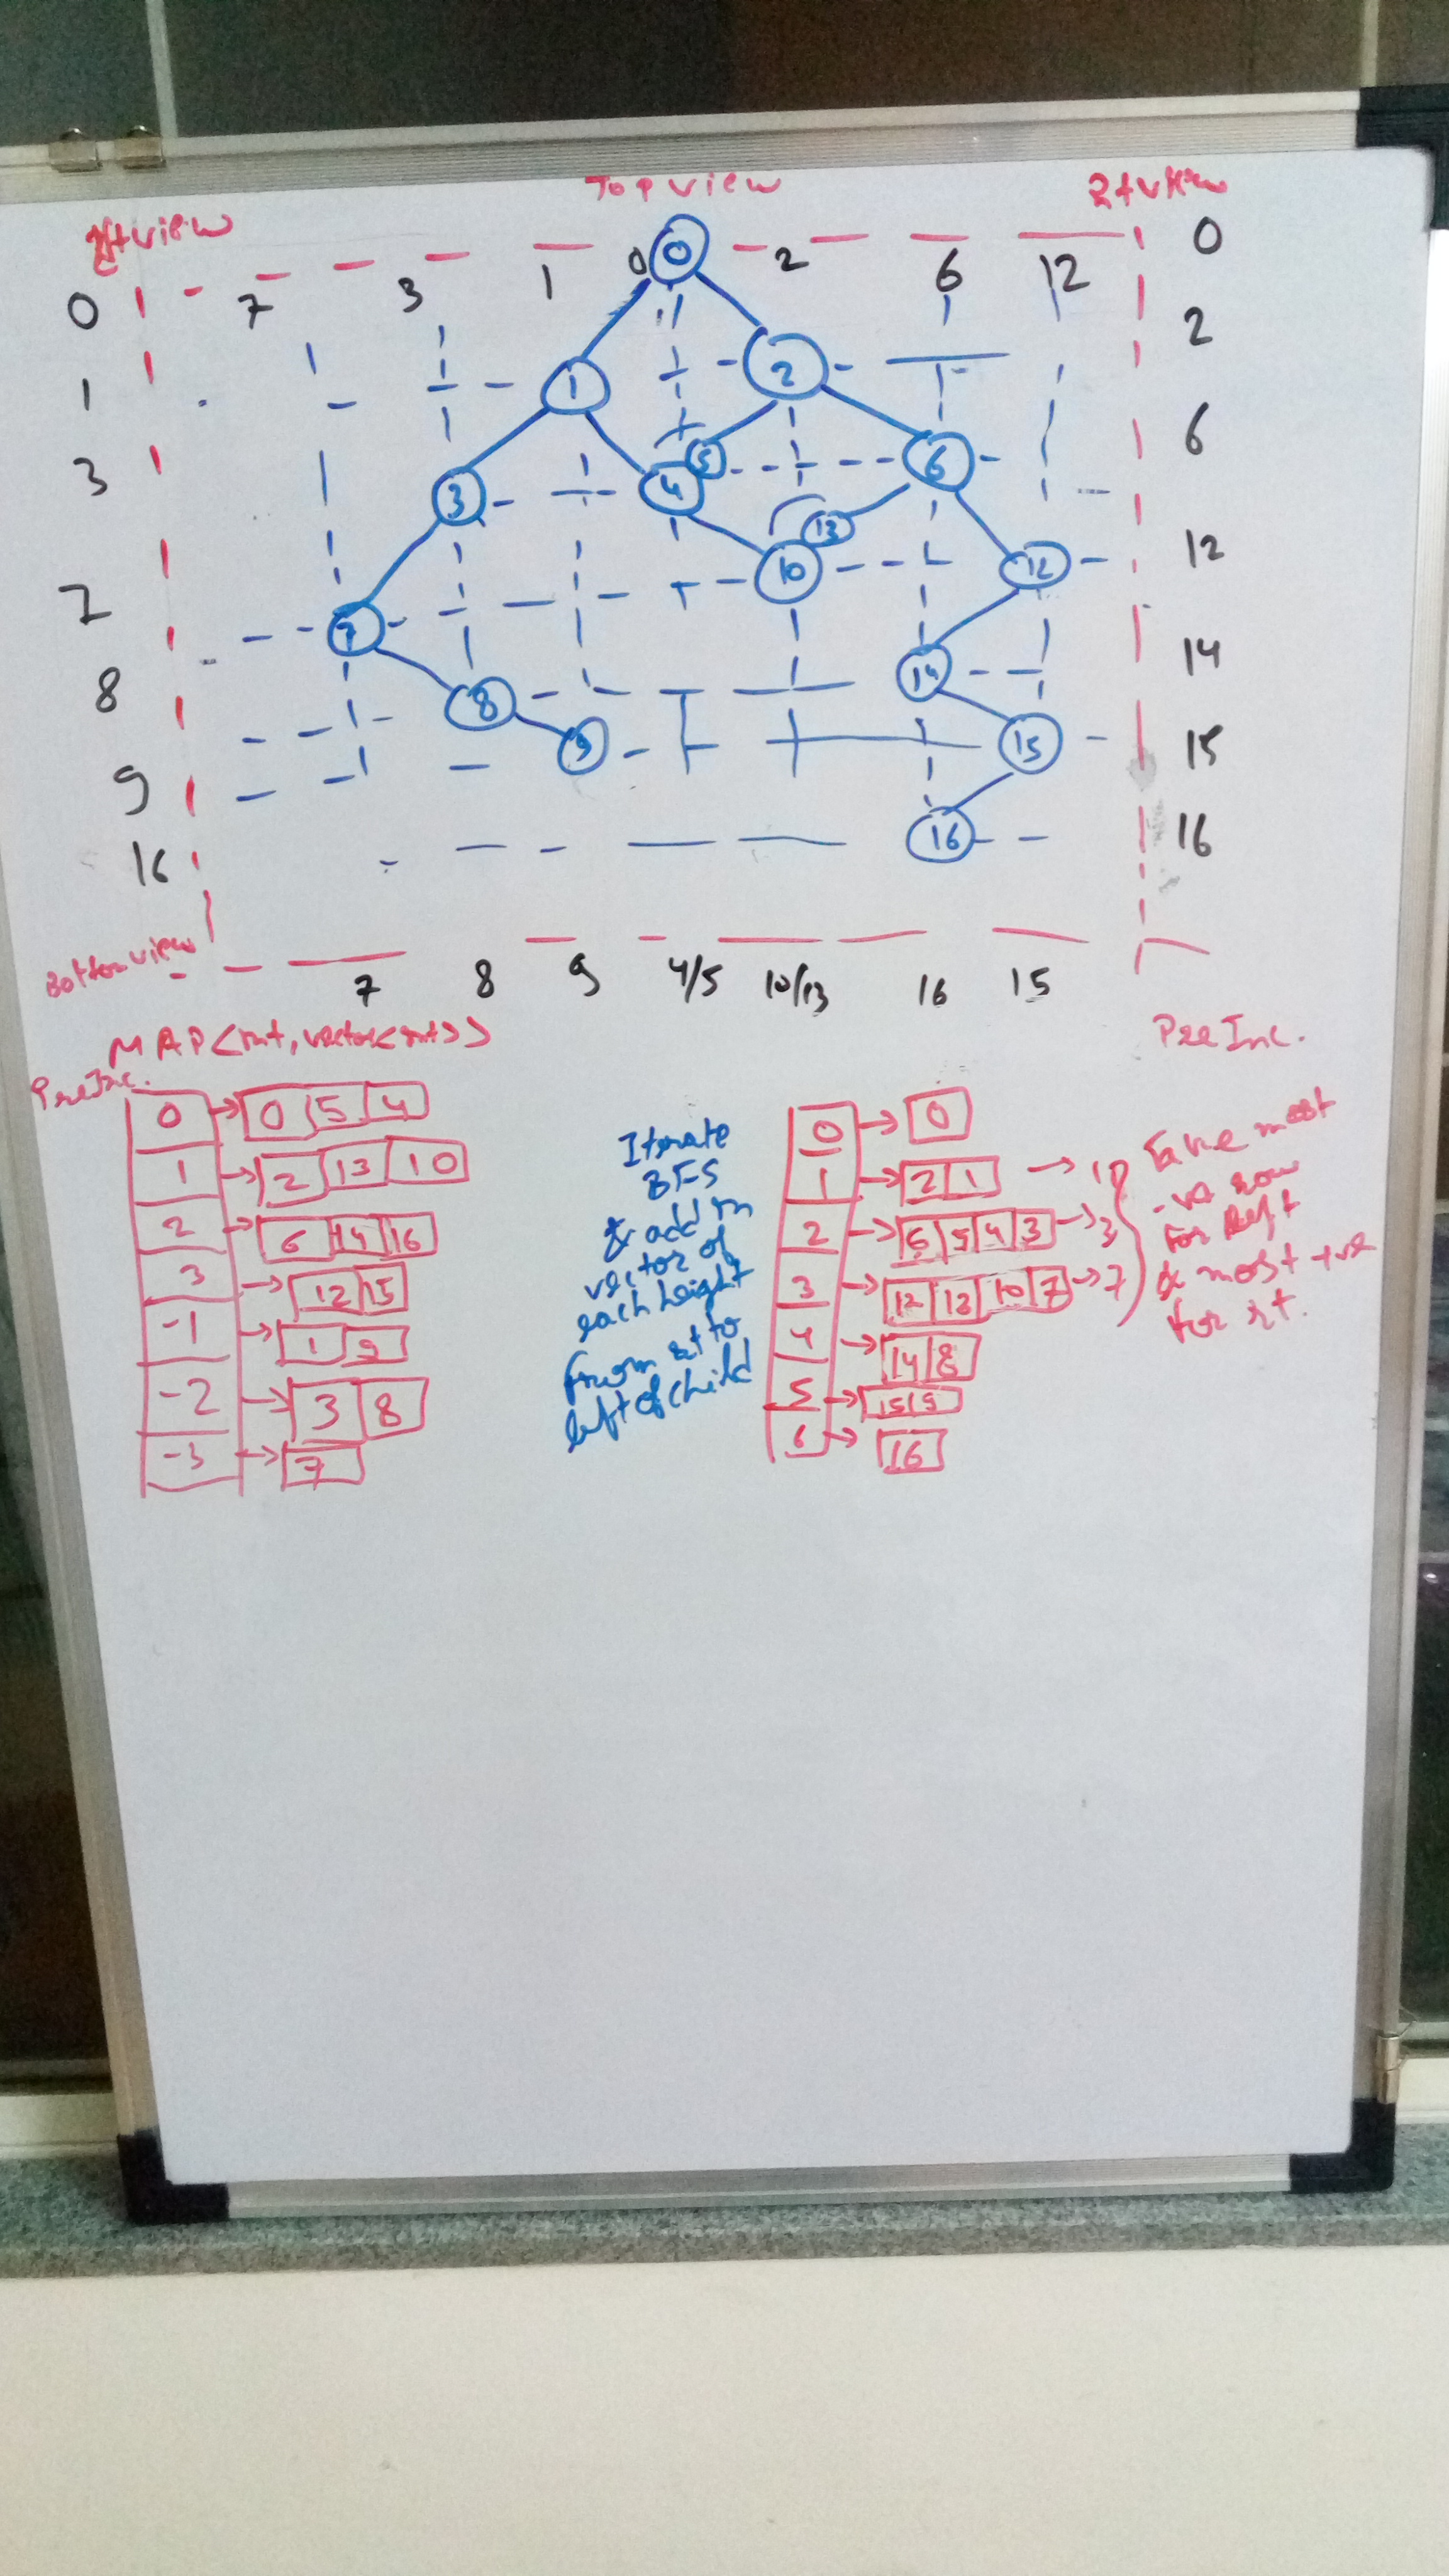 Top view
left view
Rt view
0
7 3 1 0 0 2 6 12
0
2
1
1 2
6
3
5 6
3 4
13
12
7
10 12
7
14
8
14
8
9 15
15
9
16
16
16
Bottom view
7 8 9 4/5 10/13 16 15
MAP<int, vector<int>>
Pre Inc.
Pre Inc.
0 → 0 5 4
1 → 2 13 10
2 → 6 14 16
3 → 12 15
-1 → 1 9
-2 → 3 8
-3 → 7
Iterate
BFS
& add in
vector of
each height
from rt to
left of child
0 → 0
1 → 2 1 →
2 → 6 5 4 3 → 3
3 → 12 13 10 7 → 7
4 → 14 8
5 → 15 9
6 → 16
Take most
-ve row
for left
& most +ve
for rt.